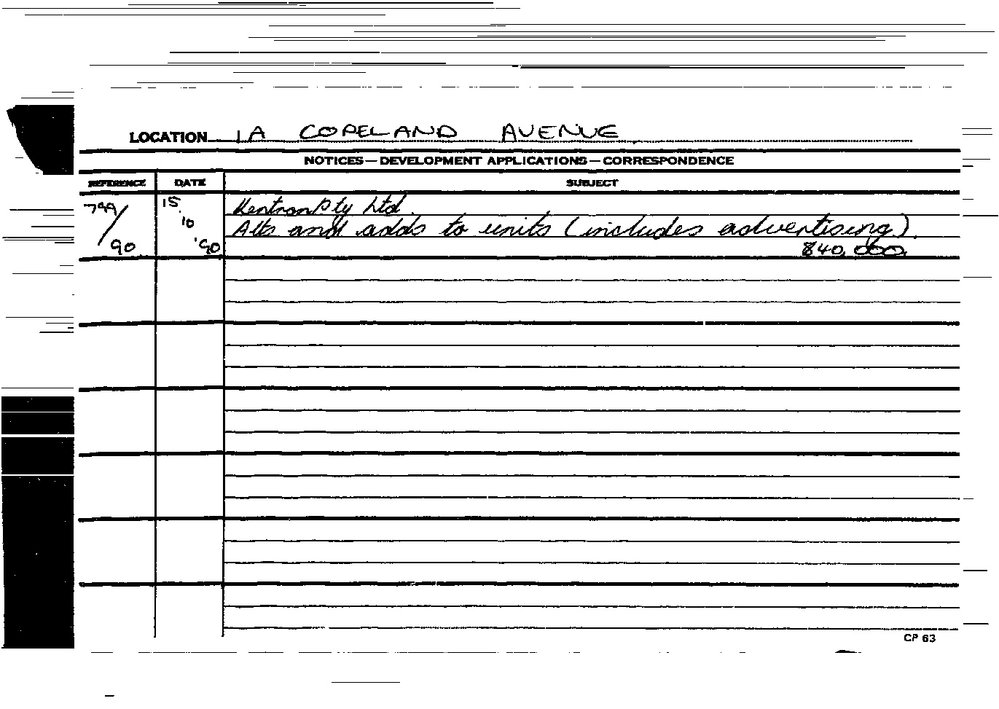 LOCATION 1A COPELAND AVENUE
NOTICES—DEVELOPMENT APPLICATIONS—CORRESPONDENCE
REFERENCE DATE SUBJECT
799/90 15.10.'90 Kentron Pty Ltd.
Alts and adds to units (includes advertising).
840,000.
CP 63